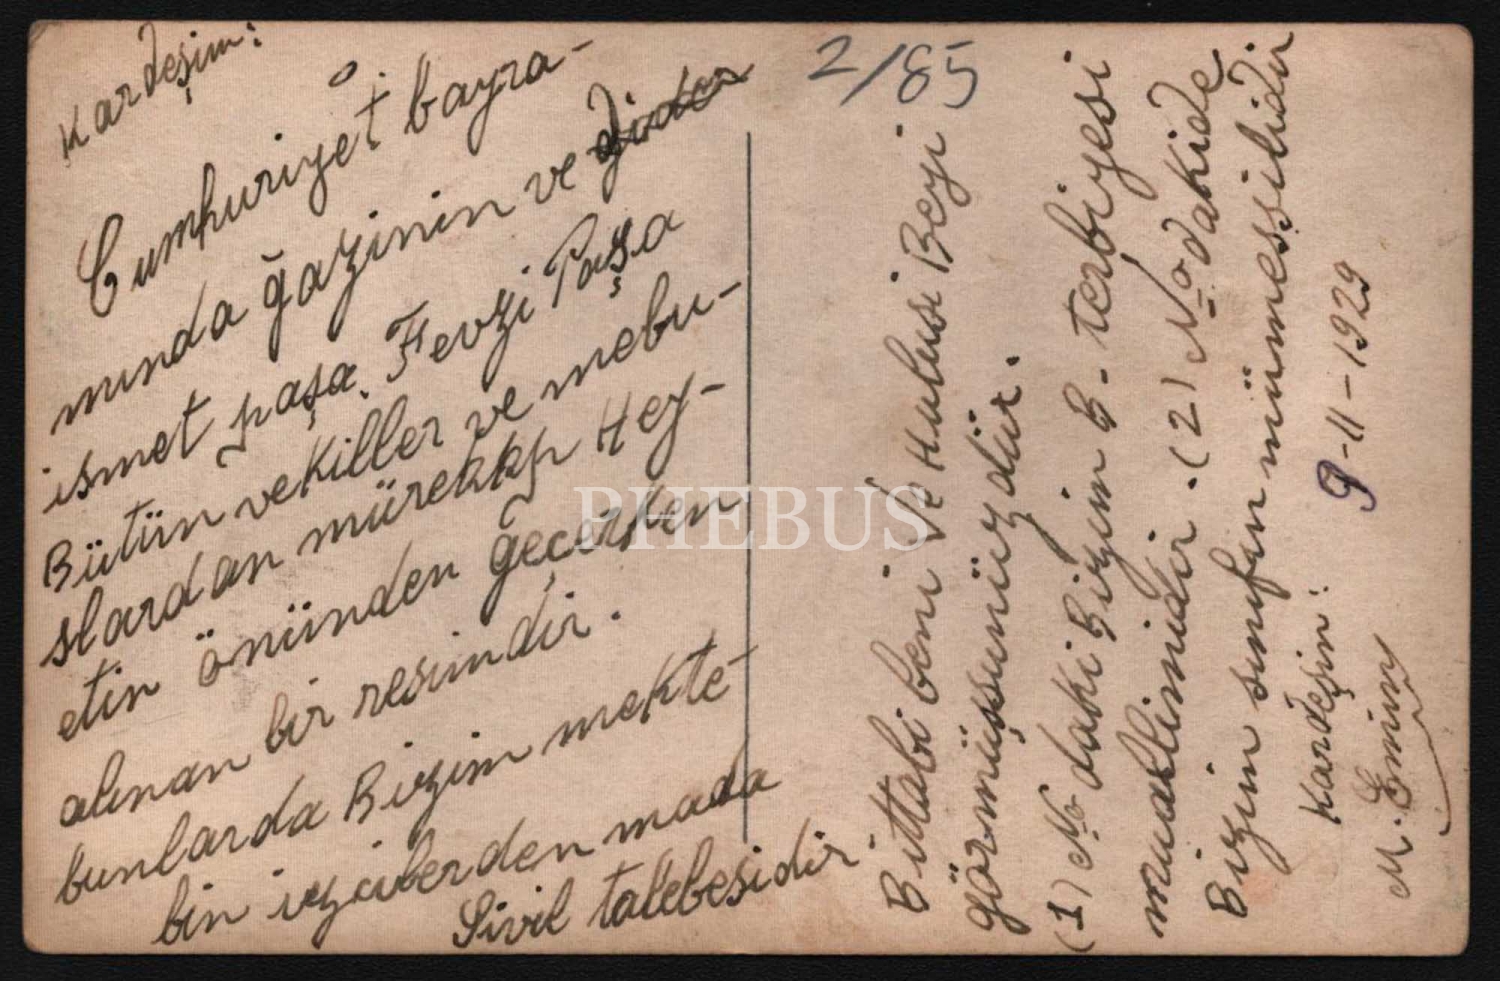 Kardeşim:
Cumhuriyet bayra-
mında ğazinin ve
ismet paşa. Fevzi Paşa
Bütün vekiller ve mebu-
slardan mürekkp Hey-
etin önünden geçerken
alınan bir resimdir.
bunlarda Bizim mekte-
bin izciberden mada
Sivil talebesidir
2/85
Bittabi beni ve Hulusi Beyi
görmüşsünüzdür.
(1) No daki Bizim B. terbiyesi
muallimidir. (2) No dakide
Bizim sınıfın mümessilidir
9-11-1929
Kardeşin:
M. Emin
PHEBUS